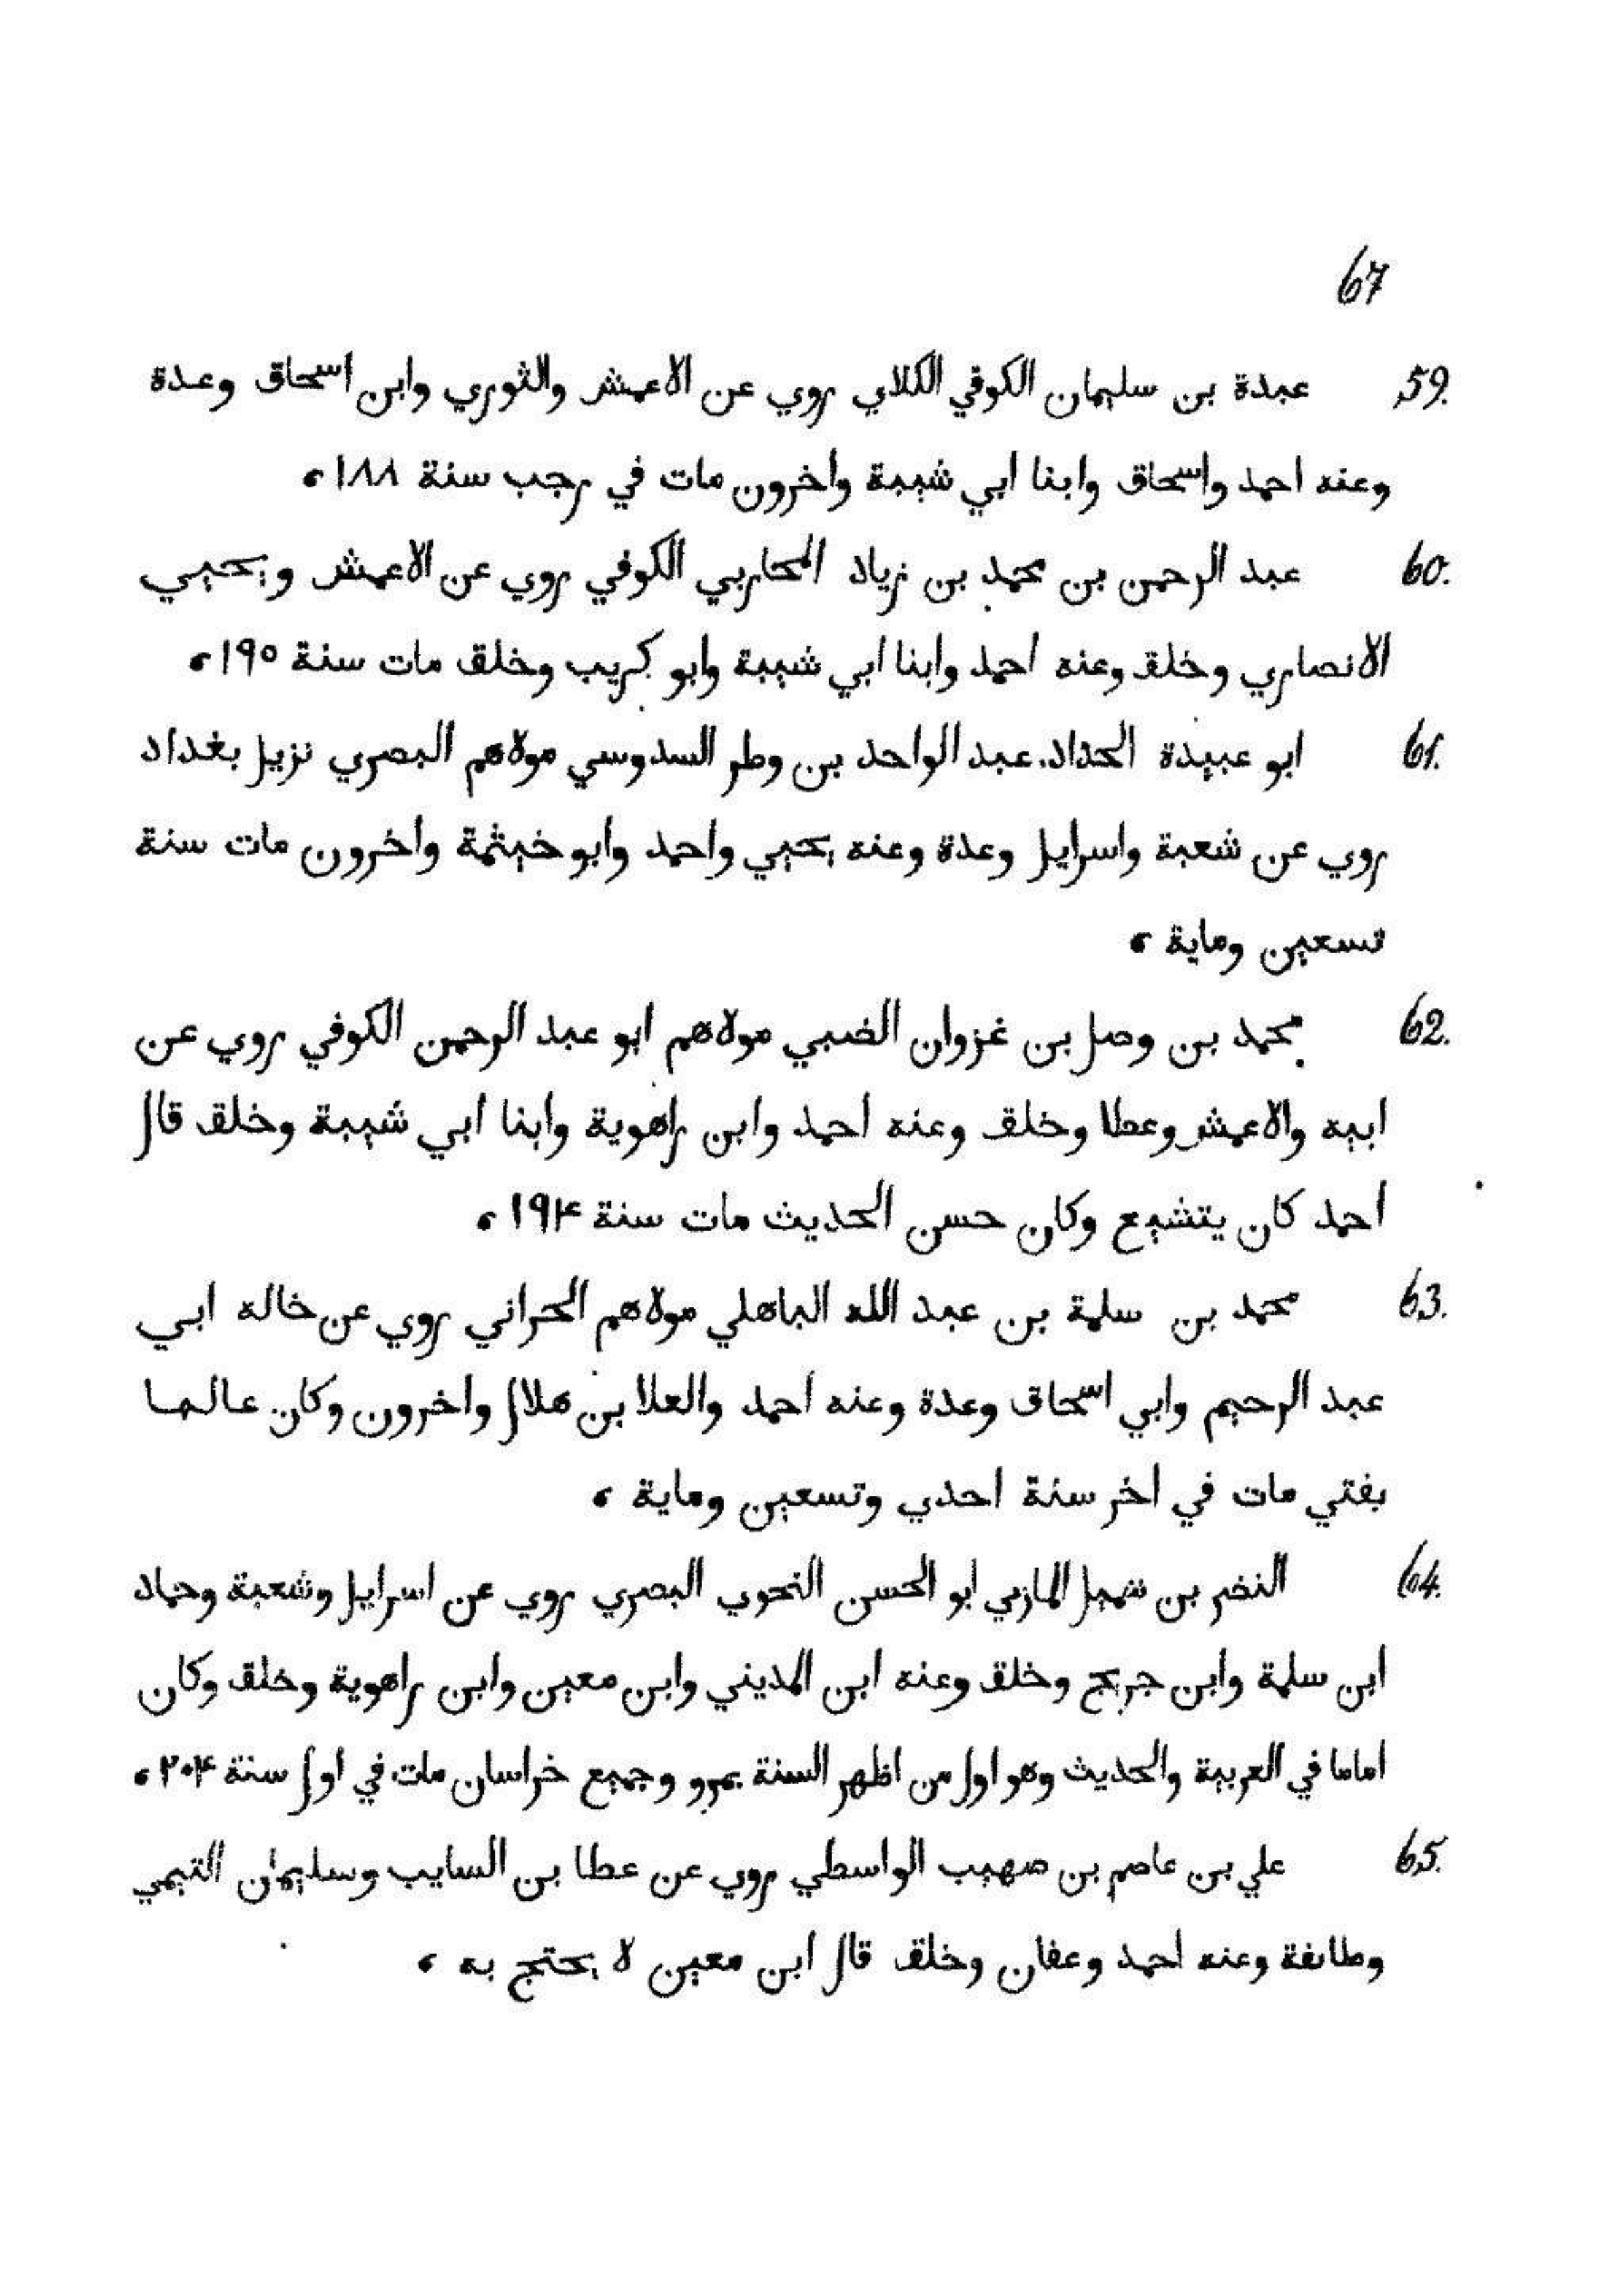 67
59. عبدة بن سليمان الكوفي الكلابي روي عن الاعمش والثوري وابن اسحاق وعدة
وعنه احمد واسحاق وابنا ابي شيبة واخرون مات في رجب سنة ١٨٨ ،
60. عبد الرحمن بن محمد بن زياد المحاربي الكوفي روي عن الاعمش ويحيي
الانصاري وخلق وعنه احمد وابنا ابي شيبة وابو كريب وخلق مات سنة ١٩٥ ،
61. ابو عبيدة الحداد. عبد الواحد بن وطر السدوسي مولاهم البصري نزيل بغداد
روي عن شعبة واسرايل وعدة وعنه يحيي واحمد وابو خيثمة واخرون مات سنة
تسعين وماية ،
62. محمد بن وصل بن غزوان الضبي مولاهم ابو عبد الرحمن الكوفي روي عن
ابيه والاعمش وعطا وخلق وعنه احمد وابن راهوية وابنا ابي شيبة وخلق قال
احمد كان يتشيع وكان حسن الحديث مات سنة ١٩۴ ،
63. محمد بن سلمة بن عبد الله الباهلي مولاهم الحراني روي عن خاله ابي
عبد الرحيم وابي اسحاق وعدة وعنه احمد والعلا بن هلال واخرون وكان عالما
يفتي مات في اخر سنة احدي وتسعين وماية ،
64. النضر بن شميل المازني ابو الحسن النحوي البصري روي عن اسرايل وشعبة وحماد
ابن سلمة وابن جريج وخلق وعنه ابن المديني وابن معين وابن راهوية وخلق وكان
اماما في العربية والحديث وهو اول من اظهر السنة بمرو وجميع خراسان مات في اول سنة ٢٠۴ ،
65. علي بن عاصم بن صهيب الواسطي روي عن عطا بن السايب وسليمان التيمي
وطائفة وعنه احمد وعفان وخلق قال ابن معين لا يحتج به ،